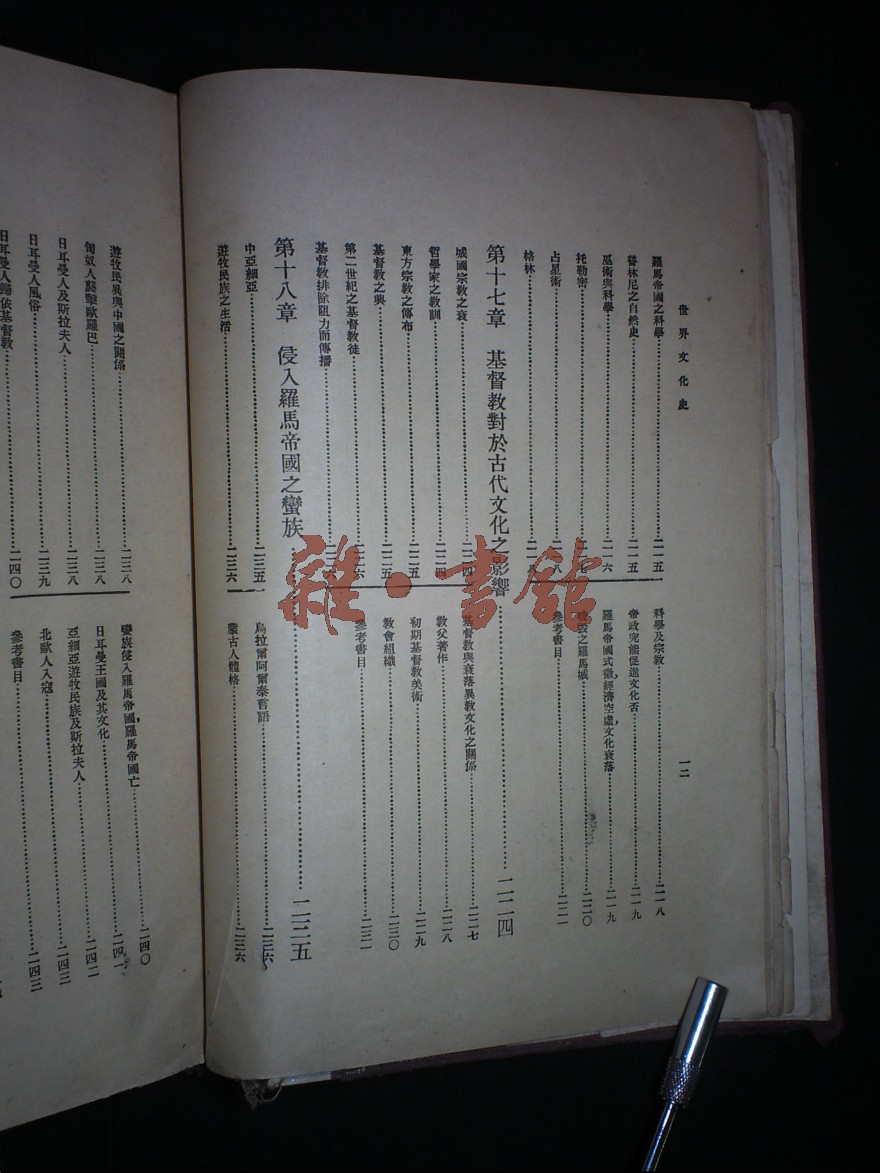 世界文化史
一二
羅馬帝國之科學……二一五
普林尼之自然史……二一五
巫術與科學……二一六
托勒密……二一七
占星術……二一八
格林……二一八
科學及宗教……二一八
帝政究能促進文化否……二一九
羅馬帝國式微,經濟空虛,文化衰落……二一九
毀之羅馬城……二二〇
參考書目……二二一
第十七章 基督教對於古代文化之影響……二二四
城國宗教之衰……二二四
哲學家之教訓……二二四
東方宗教之傳布……二二五
基督教之興……二二五
第二世紀之基督教徒……二二六
基督教排除阻力而傳播……二二六
基督教與衰落異教文化之關係……二二七
教父著作……二二八
初期基督教美術……二二九
教會組織……二三〇
參考書目……二三一
第十八章 侵入羅馬帝國之蠻族……二三五
中亞細亞……二三五
遊牧民族之生活……二三六
烏拉爾阿爾泰言語……二三六
蒙古人體格……二三六
遊牧民異與中國之關係……二三八
匈奴人襲擊歐羅巴……二三八
日耳曼人及斯拉夫人……二三八
日耳曼人風俗……二三九
日耳曼人歸依基督教……二四〇
蠻族侵入羅馬帝國,羅馬帝國亡……二四〇
日耳曼王國及其文化……二四一
亞細亞遊牧民族及斯拉夫人……二四二
北歐人入寇……二四三
參考書目……二四三
雜·書館